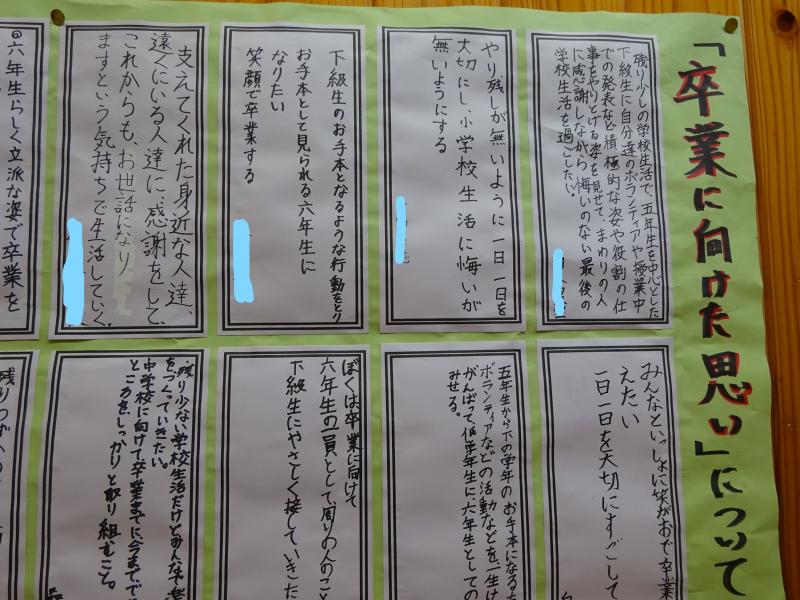 「卒業に向けた思い」について
残り少しの学校生活で、五年生を中心とした
下級生に自分達のボランティアや授業中
での発表など積極的な姿や役割の仕
事をやりとげる姿を見せて、まわりの人
に感謝しながら悔いのない最後の
学校生活を過ごしたい。
やり残しが無いように一日一日を
大切にし、小学校生活に悔いが
無いようにする
下級生のお手本となるような行動をとり
お手本として見られる六年生に
なりたい
笑顔で卒業する
支えてくれた身近な人達、
遠くにいる人達に、感謝をして
これからも、お世話になり
ますという気持ちで生活していく
◎六年生らしく立派な姿で卒業を
みんなといっしょに笑がおで卒業
えたい
一日一日を大切にすごして
五年生から下の学年のお手本になるち
ボランティアなどの活動などを一生け
がんばって、低学年生に六年生としての
みせる。
ぼくは卒業に向けて
六年生の一員として、周りの人のこと
下級生にやさしく接していきた
残り少ない学校生活だけどみんなで楽
をつくっていきたい。
中学校に向けて卒業までに、今までで
ところをしっかりと取り組むこと。